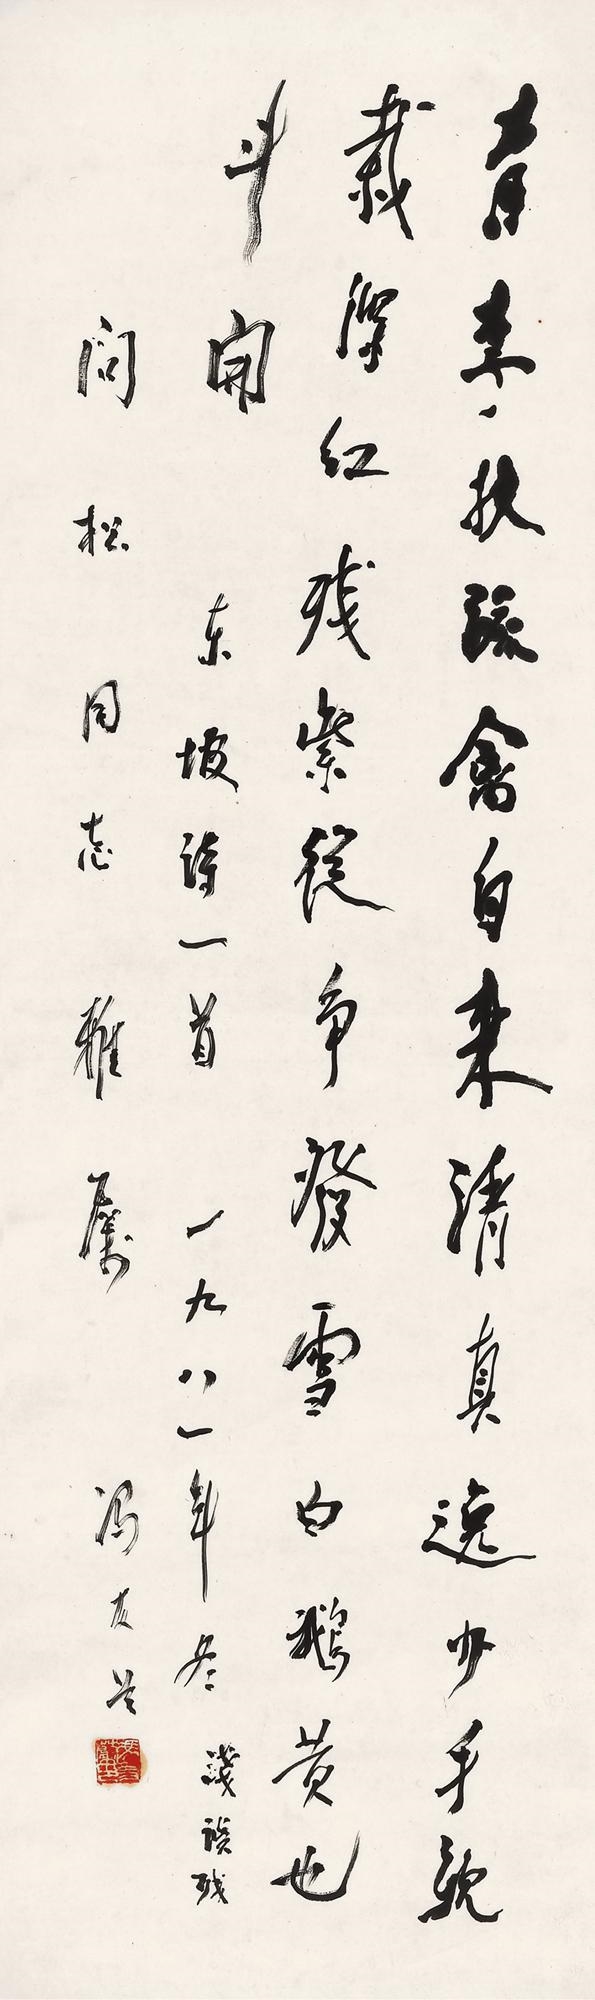 青李、扶疏禽自来清真逸少手親
栽深红残紫從争發雪白鵝黄也
斗開 东坡詩一首 一九八一年冬 淺誤残
问松同志雅属 冯友兰